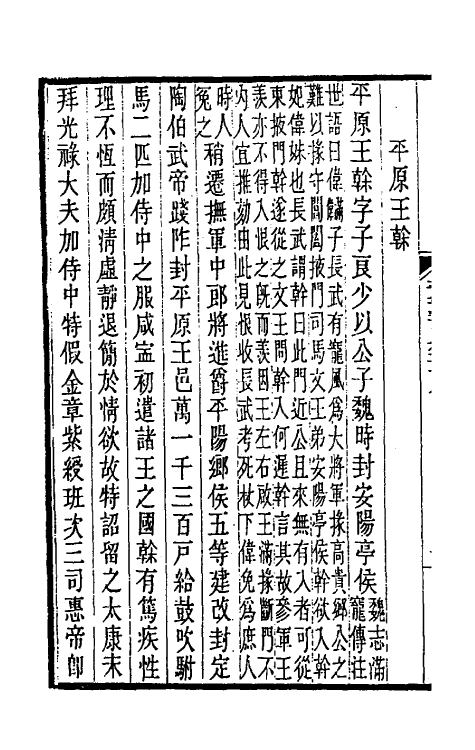 平原王榦
平原王榦字子良少以公子魏時封安陽亭侯魏志滿
寵傳注
世語曰偉子長武有寵風爲大將軍掾高貴鄉公之
難以掾守閶闔掖門司馬文王弟安陽亭侯幹欲入幹
妃偉妹也長武謂幹曰此門近公且來無有入者可從
東掖門幹遂從之文王問幹入何遲幹言其故參軍王
羨亦不得入恨之旣而羨因王左右啟王滿掾斷門不
內人宜推劾由此見恨收長武考死杖下偉免爲庶人
時人
冤之
稍遷撫軍中郎將進爵平陽鄉侯五等建改封定
陶伯武帝踐阼封平原王邑萬一千三百戶給鼓吹駙
馬二匹加侍中之服咸寧初遣諸王之國榦有篤疾性
理不恆而頗清虛靜退簡於情欲故特詔留之太康末
拜光祿大夫加侍中特假金章紫綬班次三司惠帝卽